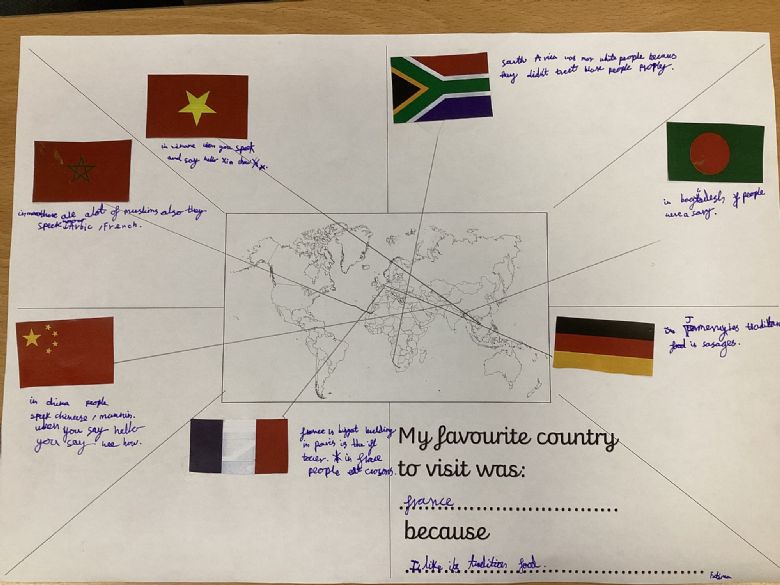 South Arica was not white people becaus
they didn't treat black people Proply.
in when you speak
and say hello Xin chw
in are alot of muslims also they
speak Arbic, French.
in bagladesh people
were a sary.
in Jermeny its traditional
food is sasages.
in china people
speak chinese, manrin.
when you say hello
you say. nee how.
france is biggest building
in paris is the ifl
tower. in frace
people eat crosons.
My favourite country
to visit was:
france
because
I like its tradition food.
Fatima